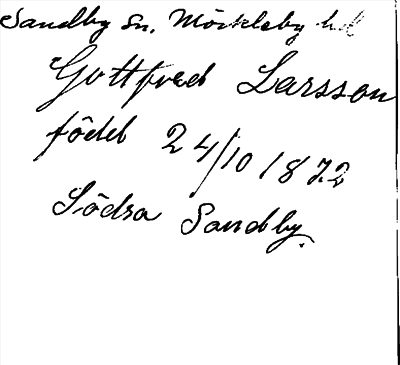 Sandby sn. Möckleby hd
Gottfred Larsson
född 24/10 1872
Södra Sandby.